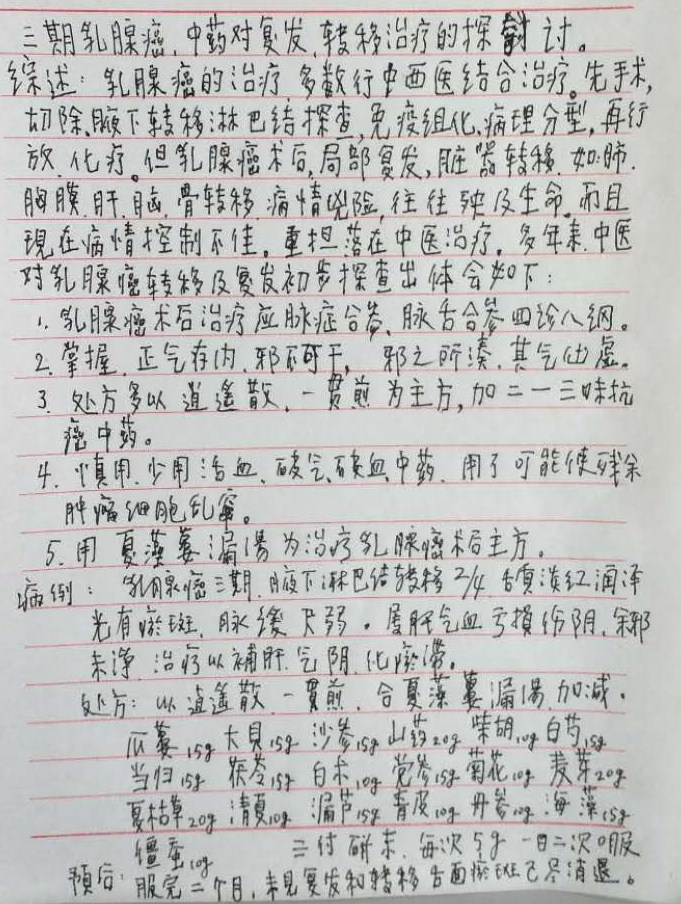 三期乳腺癌,中药对复发,转移治疗的探讨。
综述:乳腺癌的治疗,多数行中西医结合治疗。先手术,
切除、腋下转移淋巴结探查,免疫组化、病理分型,再行
放、化疗。但乳腺癌术后,局部复发,脏器转移.如:肺.
胸膜.肝.脑.骨转移.病情凶险,往往殃及生命。而且
现在病情控制不佳。重担落在中医治疗。多年来.中医
对乳腺癌转移及复发初步探查出体会如下:
1.乳腺癌术后治疗应脉症合参、脉舌合参四诊八纲。
2.掌握.正气存内,邪不可干, 邪之所凑,其气必虚。
3.处方多以 逍遥散.一贯煎 为主方,加二一三味抗
癌中药。
4.慎用.少用活血、破气、破血中药.用了可能使残余
肿瘤细胞乱窜。
5.用 夏藻蒌漏汤为治疗乳腺癌术后主方。
病例: 乳腺癌三期.腋下淋巴结转移2/4.舌质淡红润泽
光有瘀斑.脉缓尺弱。属肝气血亏損伤阴.余邪
未净.治疗以補肝.气阴.化瘀滞。
处方:以逍遥散.一贯煎.合夏藻蒌漏汤.加减.
瓜蒌15g 大贝15g 沙参15g 山药20g 柴胡10g 白芍15g
当归15g 茯苓15g 白术10g 党参15g 菊花10g 麦芽20g
夏枯草20g 清夏10g 漏芦15g 青皮10g 丹参10g 海藻15g
僵蚕10g 三付研末.每次5g 一日二次口服
预后:服完二个月,未見复发和转移舌面瘀斑已尽消退。